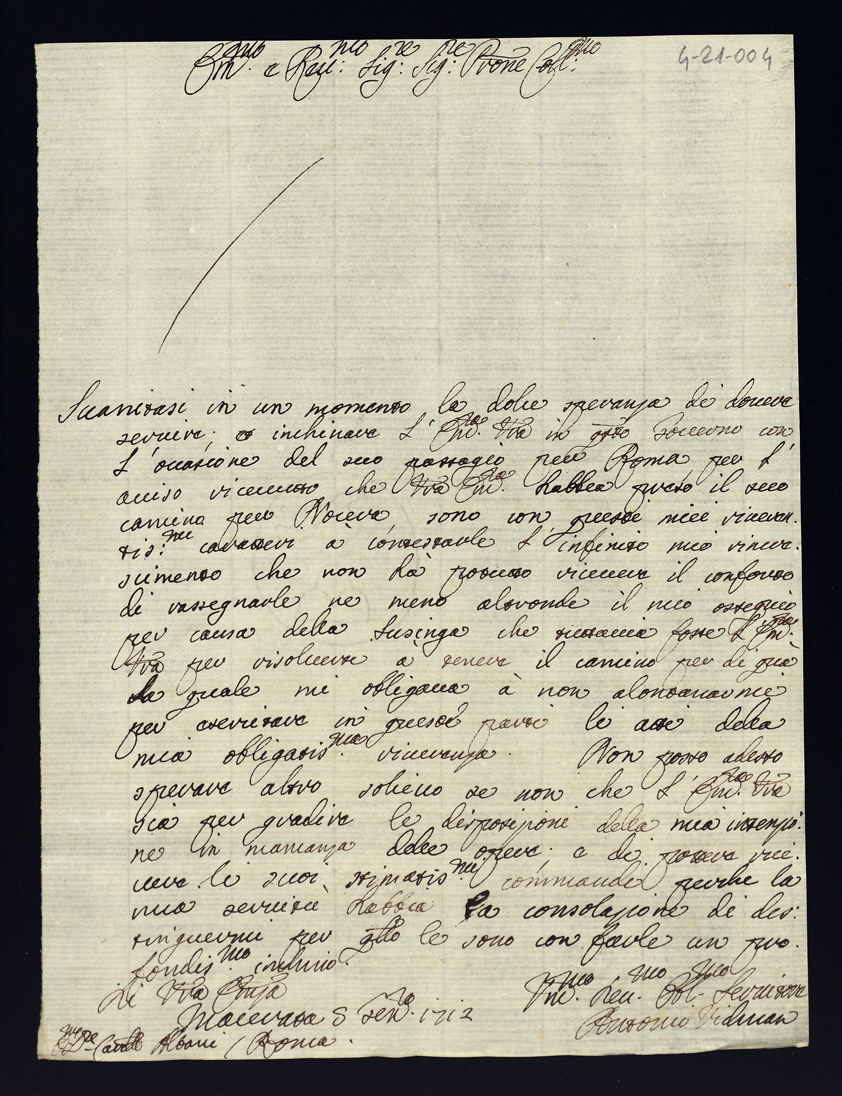 4-21-004
Em.mo e Reu.mo Sig.re Sig.re Prone Coll.mo
Suanitasi in un momento la dolce speranza di douere
seruire, e inchinare l'Em.za Vra in qsto Gouerno con
l'occasione del suo passaggio per Roma per l'
auiso riceuuto che Vra Em.za habbia preso il suo
camino per Nocera sono con queste miei riueren-
tis.mi caratteri à contestarle l'infinito mio rincre-
scimento che non hà potuto riceuere il conforto
di rassegnarle ne meno altronde il mio ossequio
per causa della lusinga che tuttauia fosse l'Em.za
Vra per risoluere à tenere il camino per di quà
la quale mi obligaua à non alontanarmi
per esercitare in queste parti le atti della
mia obligatis.ma riuerenza. Non posso adesso
sperare altro solieuo se non che l'Em.za Vra
sia per gradire le disposizioni della mia intenzio-
ne in mancanza delle opere, e di potere rice-
uere li suoi stimatis.mi commandi perche la
mia seruitù habbia la consolazione di dis-
tinguermi per qllo le sono con farle un pro-
fondis.mo inchino.
Di Vra Emza
Macerata 8 Sen. 1712
Vm.mo Deu. Obl. Seruitore
Antonio Vidman
Card Albani / Roma.